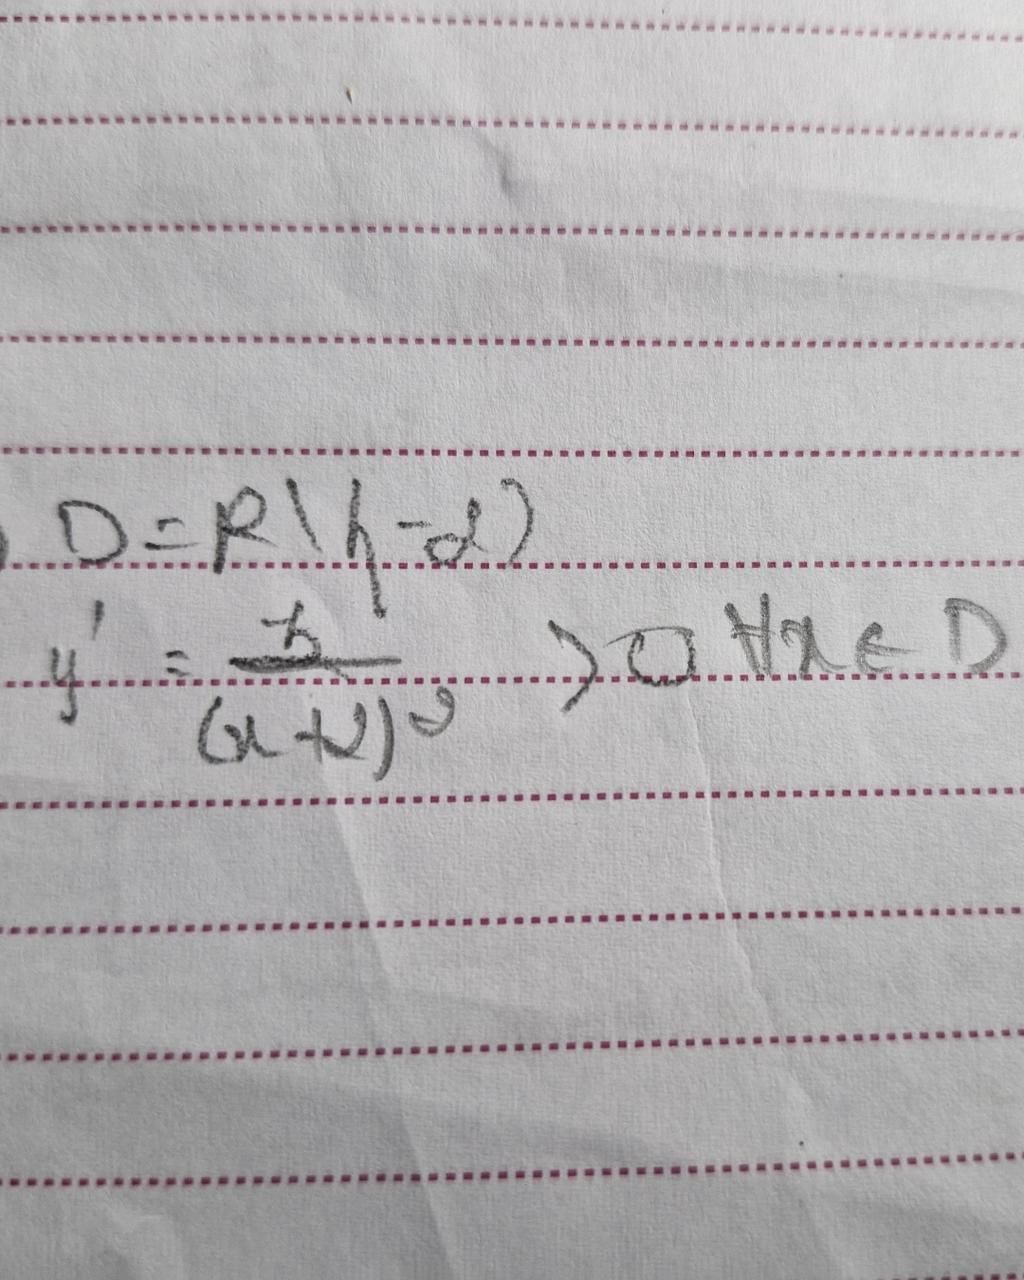 D = R \ {-2}
y' = 5/(x+2)² > 0 ∀x ∈ D